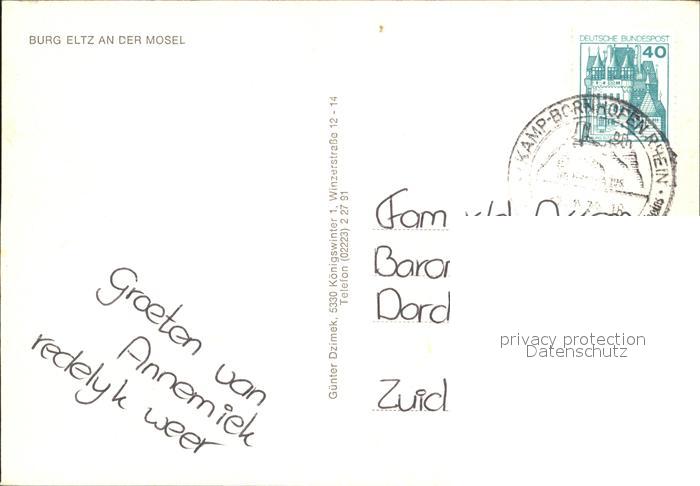 BURG ELTZ AN DER MOSEL
DEUTSCHE BUNDESPOST
40
KAMP-BORNHOFEN/RHEIN
Günter Dzimek, 5330 Königswinter 1, Winzerstraße 12 - 14
Telefon (02223) 2 27 91
Groeten van
Annemiek
redelyk weer
Fam
Baror
Dord
Zuid
privacy protection
Datenschutz